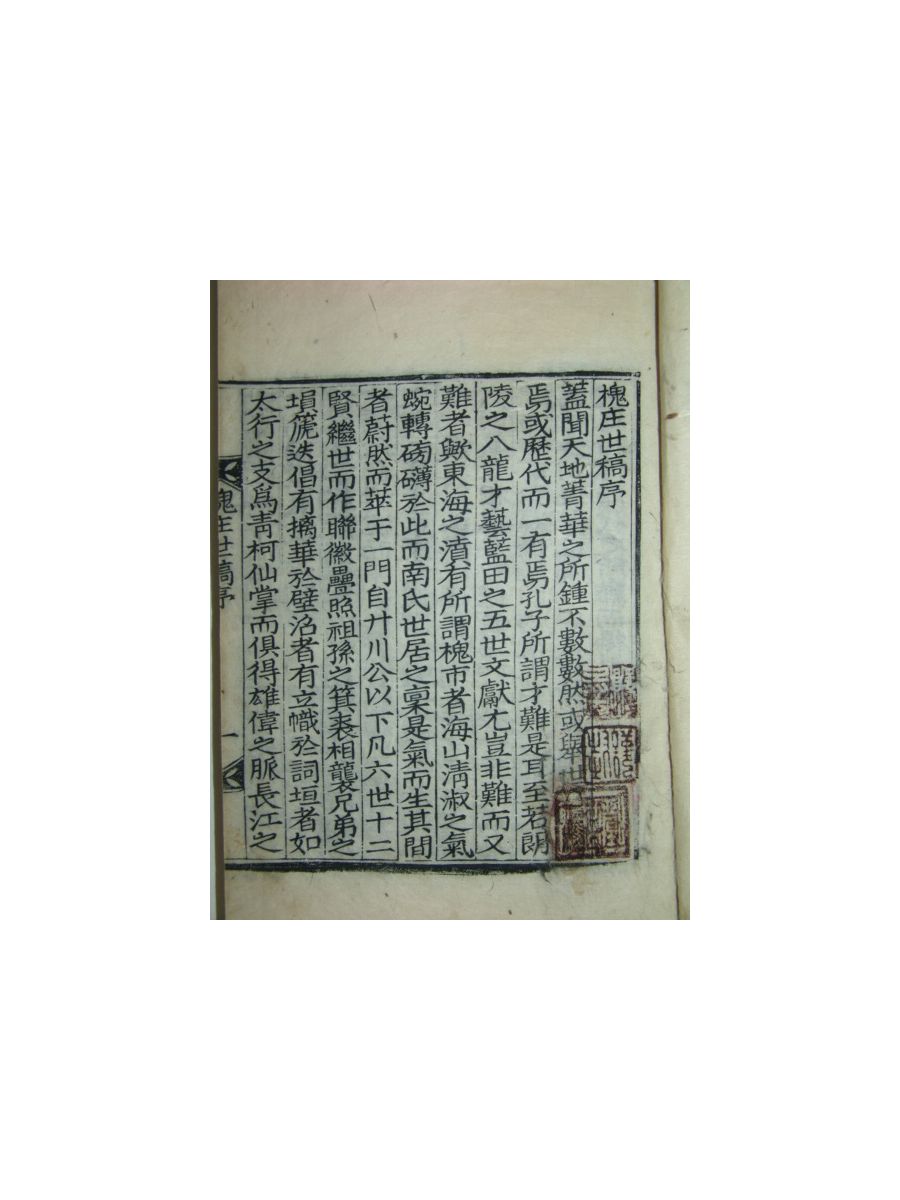 槐庄世稿序
蓋聞天地菁華之所鍾不數數然或
焉或歷代而一有焉孔子所謂才難是耳至若朗
陵之八龍才藝藍田之五世文獻尤豈非難而又
難者歟東海之濆有所謂槐市者海山淸淑之氣
蜿轉磅礴於此而南氏世居之稟是氣而生其間
者蔚然而萃于一門自廾川公以下凡六世十二
賢繼世而作聯徽疊照祖孫之箕裘相襲兄弟之
塤篪迭倡有摛華於壁沼者有立幟於詞垣者如
太行之支爲靑柯仙掌而俱得雄偉之脈長江之
槐庄世稿序
一